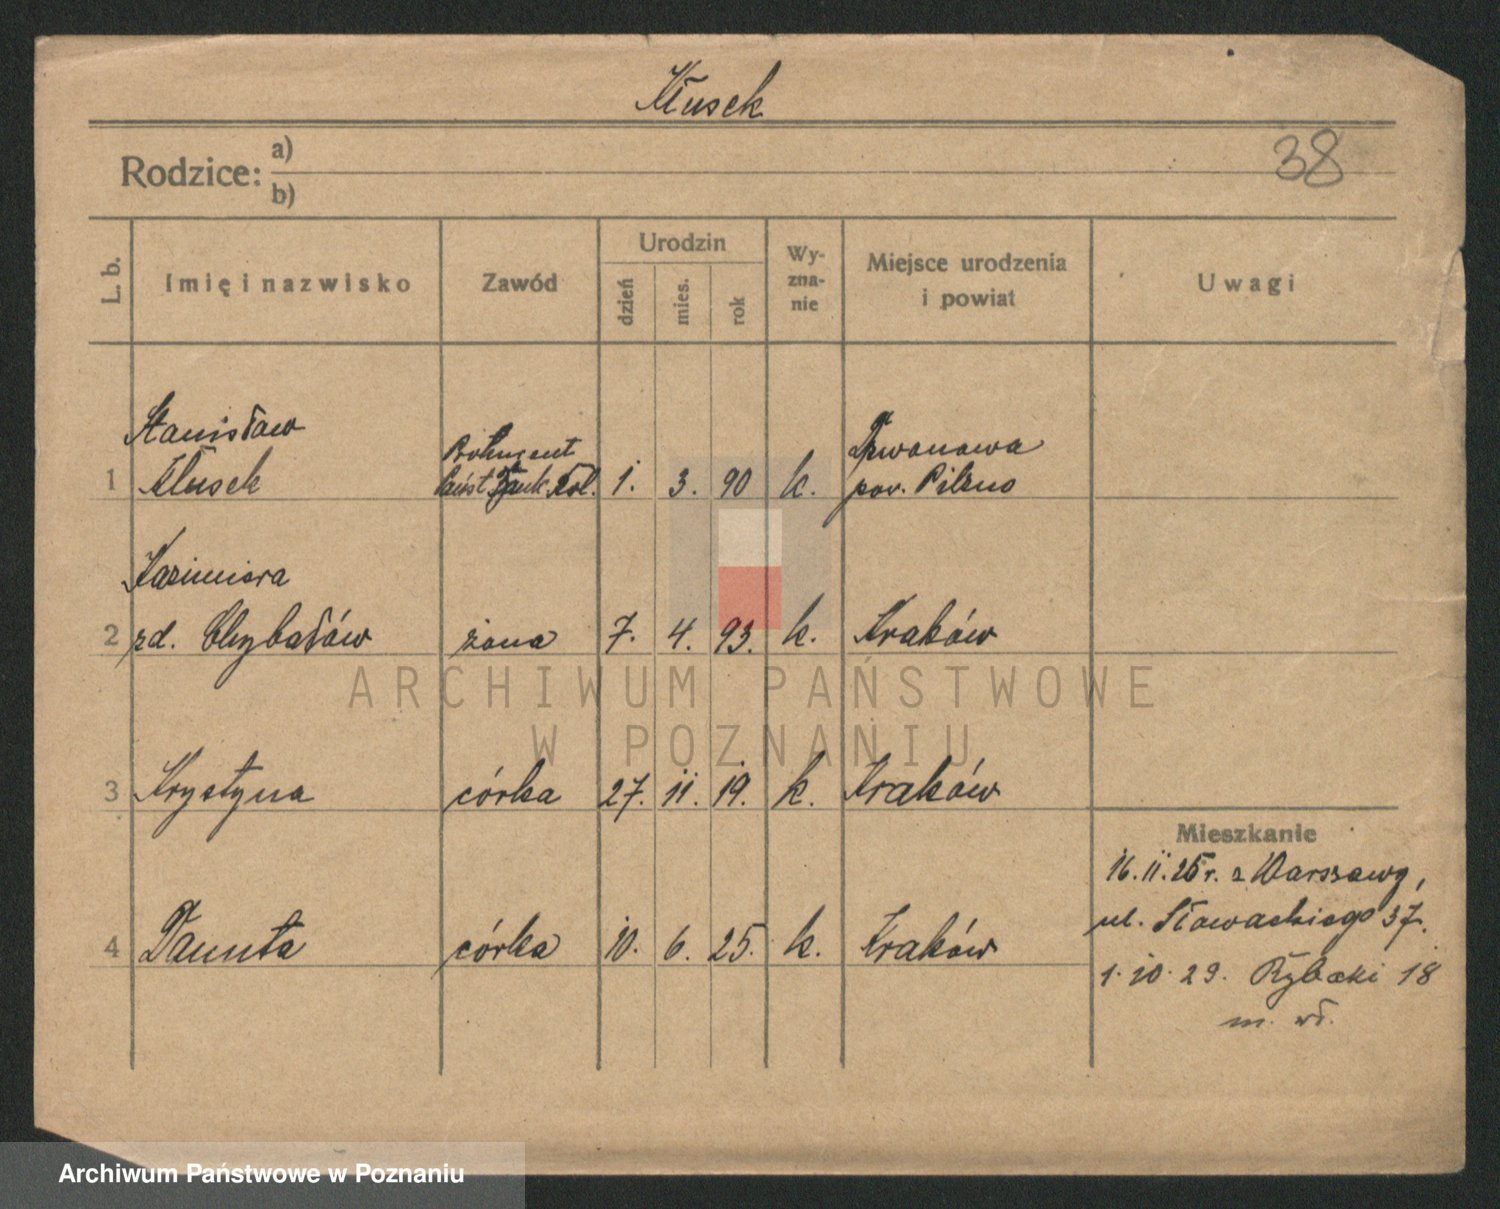 Kłusek
38
Rodzice: a)
b)
L. b.
Imię i nazwisko
Zawód
Urodzin
dzień
mies.
rok
Wy-
zna-
nie
Miejsce urodzenia
i powiat
Uwagi
Stanisław
1 Kłusek Państ. Bank Rol. 1. 3. 90 k. pow. Pilzno
Kazimiera
2 zd. Chybałów żona 7. 4. 93. k. Kraków
3 Krystyna córka 27. 11. 19. k. Kraków
Mieszkanie
16.11.25 r. z Warszawy,
ul. Słowackiego 37.
4 Danuta córka 10. 6. 25. k. Kraków
1. 10. 29. Rybaki 18
m. wł.
ARCHIWUM PAŃSTWOWE
W POZNANIU
Archiwum Państwowe w Poznaniu